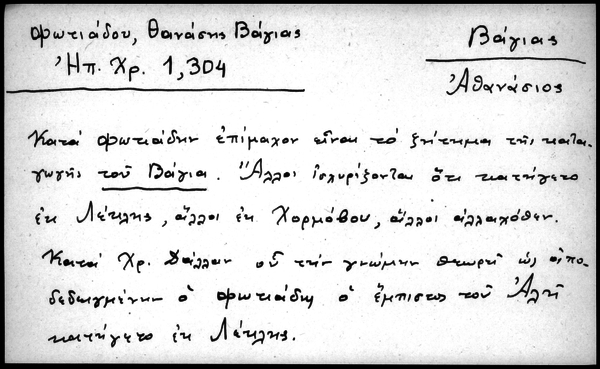 Φωτιάδου, Θανάσης Βάγιας
Ἠπ. Χρ. 1,304
Βάγιας
Ἀθανάσιος
Κατά Φωτιάδην ἐπίμαχον εἶναι τό ζήτημα τῆς κατα-
γωγῆς τοῦ Βάγια. Ἄλλοι ἰσχυρίζονται ὅτι κατήγετο
ἐκ Λέκλης, ἄλλοι ἐκ Χορμόβου, ἄλλοι ἀλλαχόθεν.
Κατά Χρ. Δάλλαν οὗ τήν γνώμην θεωρεῖ ὡς ἀπο-
δεδειγμένην ὁ Φωτιάδης ὁ ἔμπιστος τοῦ Ἀλῆ
κατήγετο ἐκ Λέκλης.